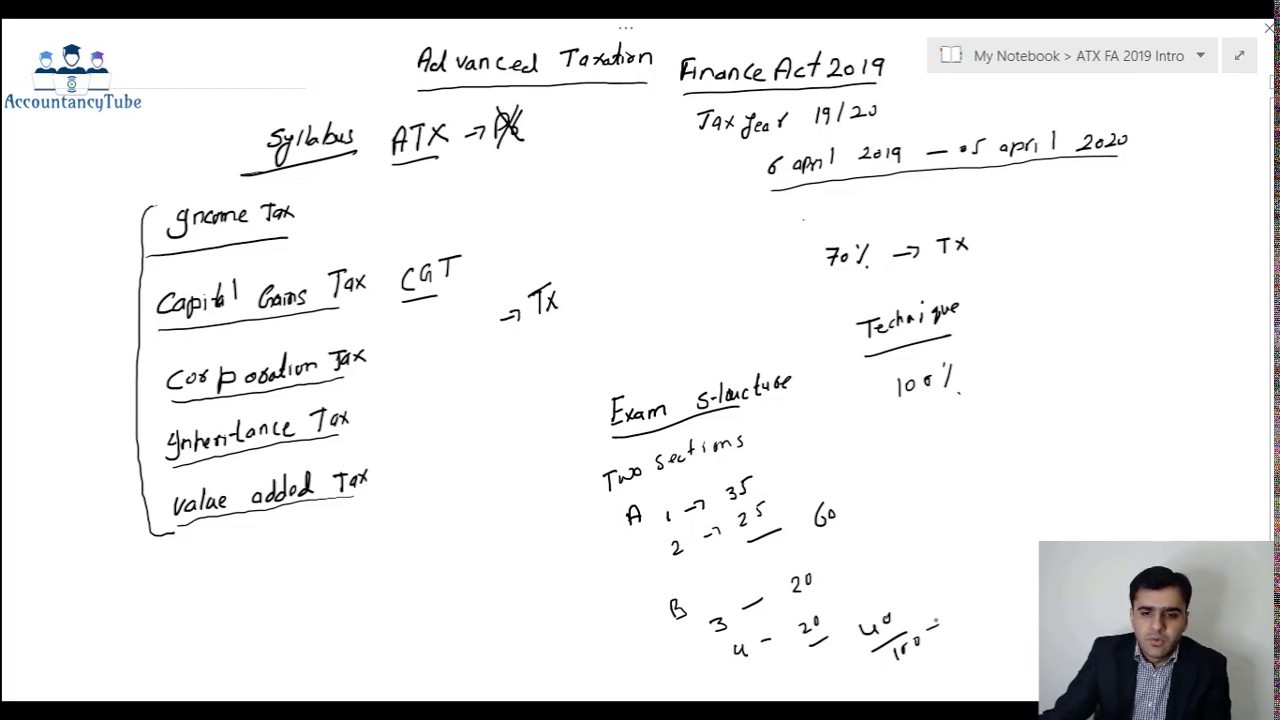 My Notebook > ATX FA 2019 Intro
AccountancyTube
Advanced Taxation Finance Act 2019
Tax year 19/20
6 april 2019 — 05 april 2020
Syllabus ATX →
Income Tax
Capital Gains Tax CGT
→ Tx
Corporation Tax
Inheritance Tax
value added Tax
70% → TX
Technique
100%
Exam Structure
Two sections
A 1 → 35
2 → 25 60
B 3 — 20
4 — 20 40
100